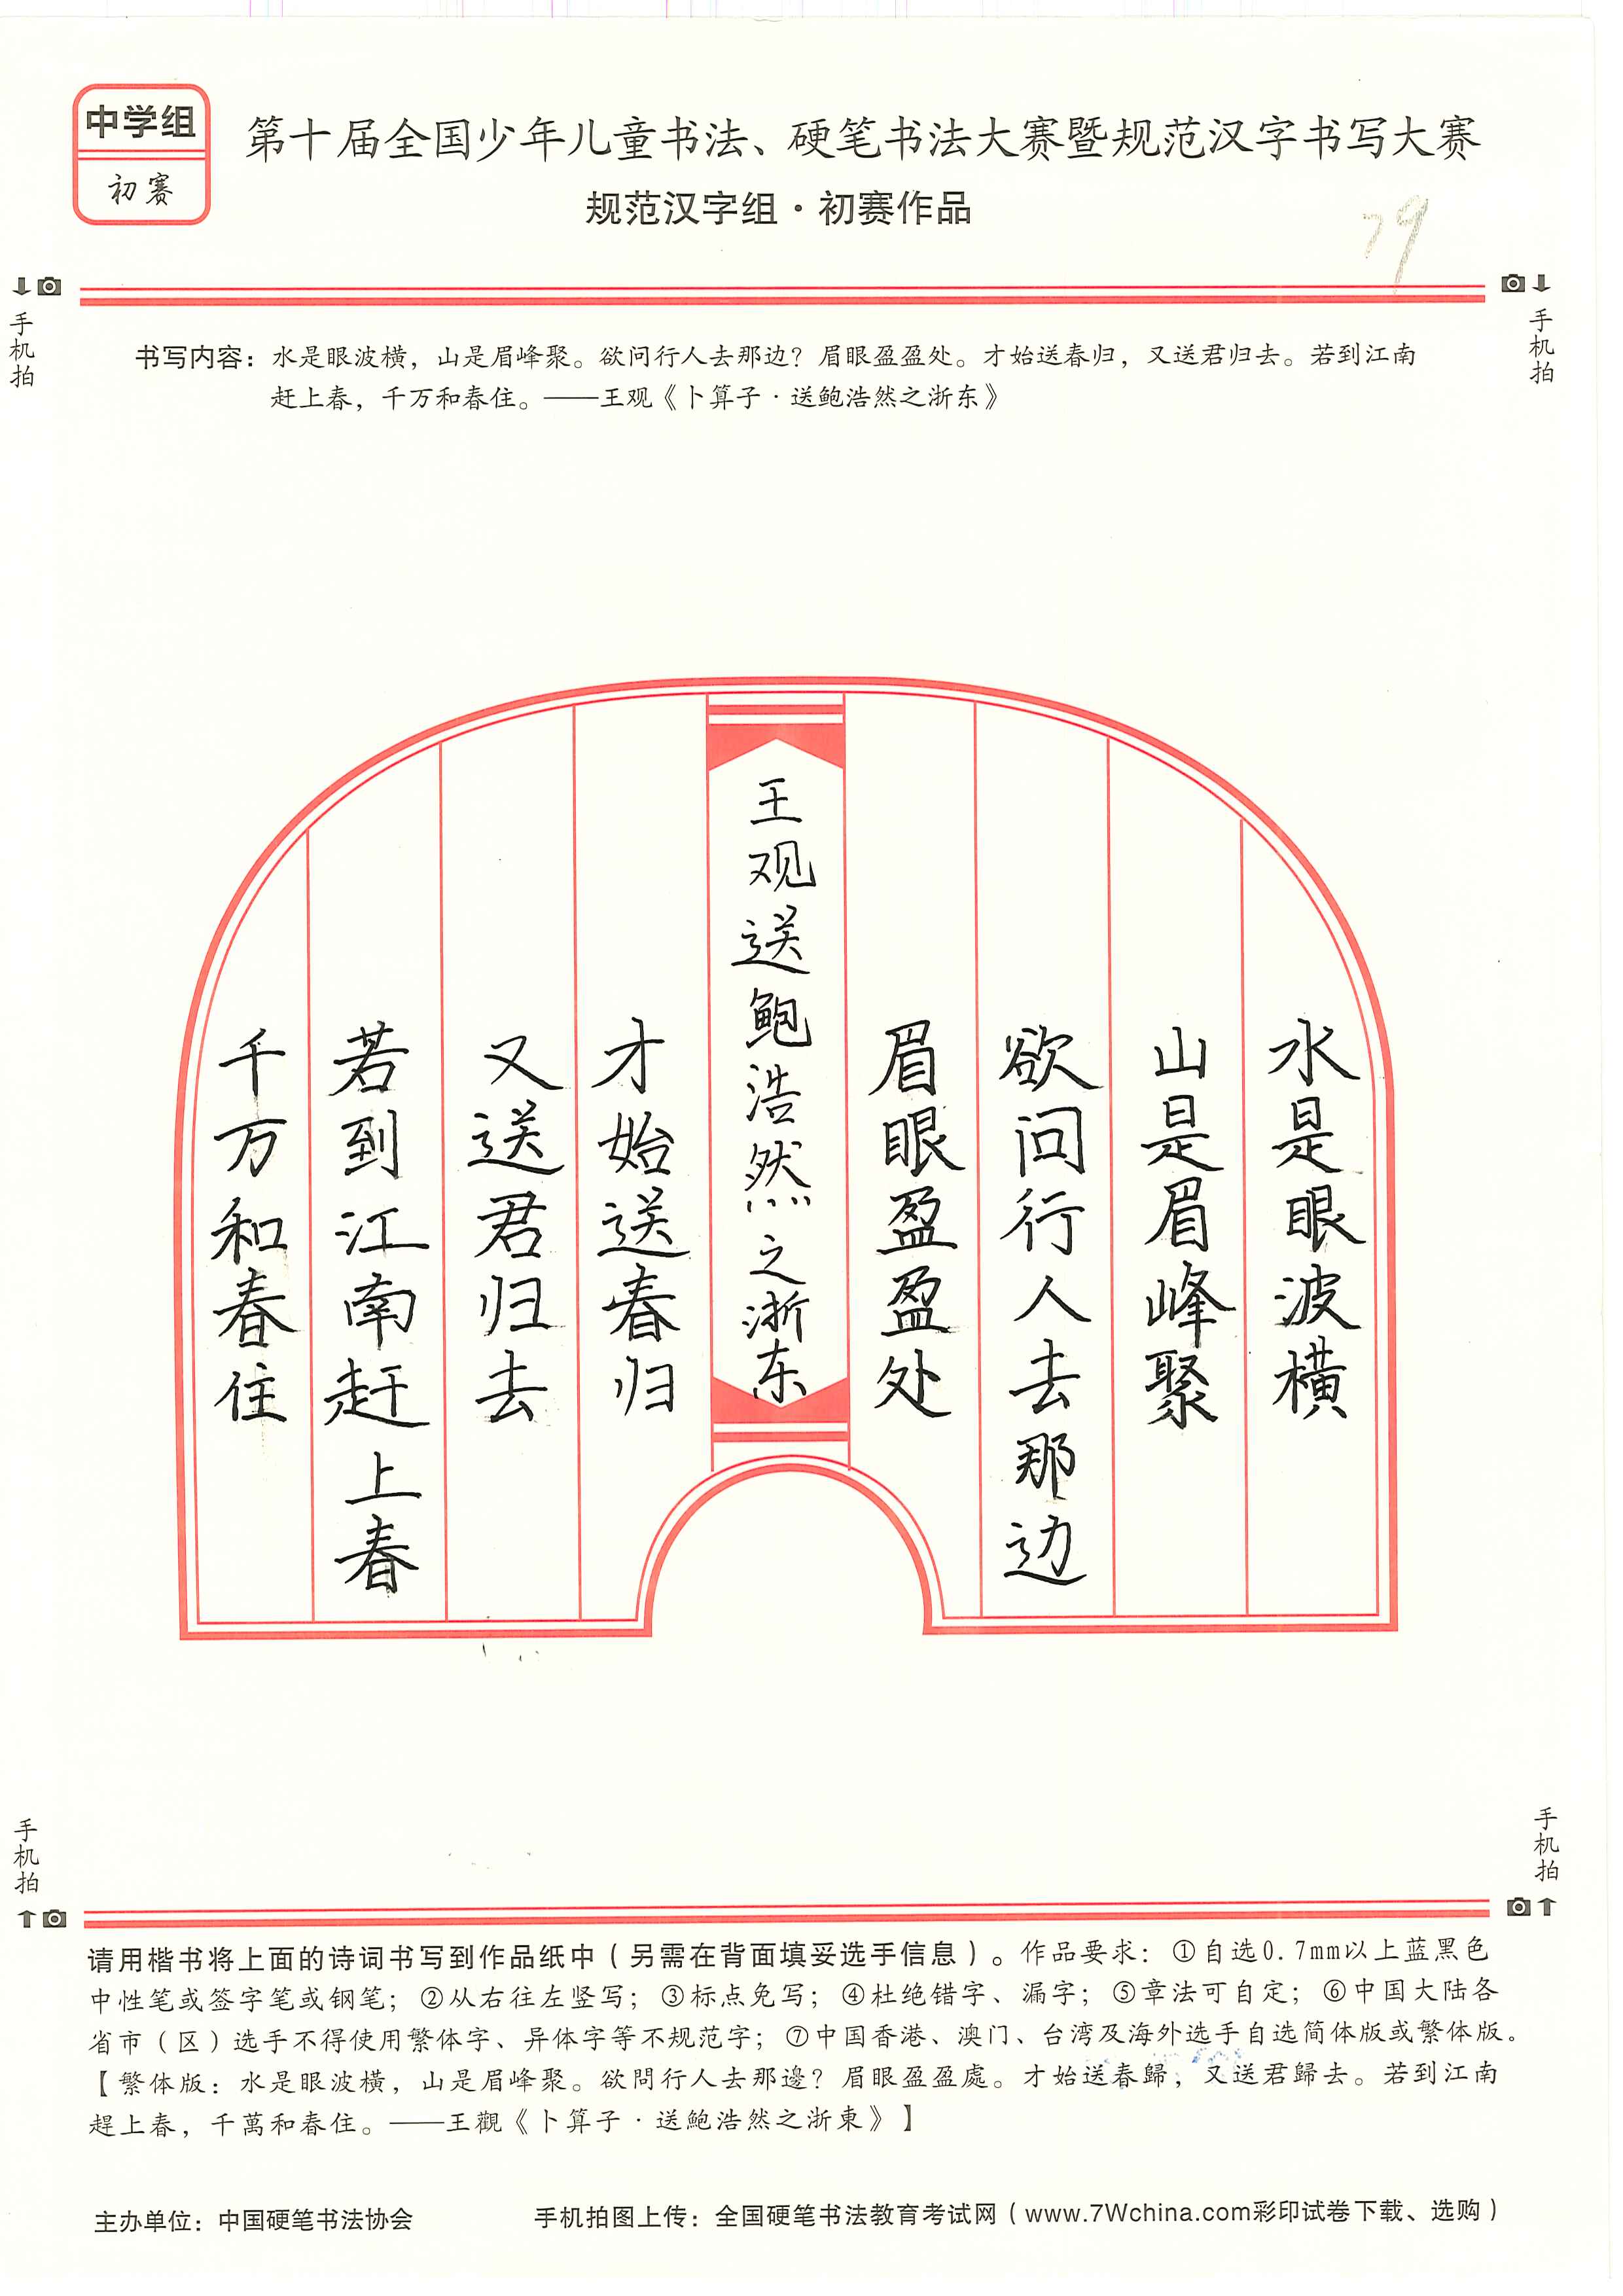 中学组
初赛
第十届全国少年儿童书法、硬笔书法大赛暨规范汉字书写大赛
规范汉字组·初赛作品
79
手机拍
手机拍
书写内容：水是眼波横，山是眉峰聚。欲问行人去那边？眉眼盈盈处。才始送春归，又送君归去。若到江南
赶上春，千万和春住。——王观《卜算子·送鲍浩然之浙东》
水是眼波横
山是眉峰聚
欲问行人去那边
眉眼盈盈处
王观送鲍浩然之浙东
才始送春归
又送君归去
若到江南赶上春
千万和春住
手机拍
手机拍
请用楷书将上面的诗词书写到作品纸中（另需在背面填妥选手信息）。作品要求：①自选0.7mm以上蓝黑色
中性笔或签字笔或钢笔；②从右往左竖写；③标点免写；④杜绝错字、漏字；⑤章法可自定；⑥中国大陆各
省市（区）选手不得使用繁体字、异体字等不规范字；⑦中国香港、澳门、台湾及海外选手自选简体版或繁体版。
【繁体版：水是眼波橫，山是眉峰聚。欲問行人去那邊？眉眼盈盈處。才始送春歸，又送君歸去。若到江南
趕上春，千萬和春住。——王觀《卜算子·送鮑浩然之浙東》】
主办单位：中国硬笔书法协会
手机拍图上传：全国硬笔书法教育考试网（www.7Wchina.com彩印试卷下载、选购）